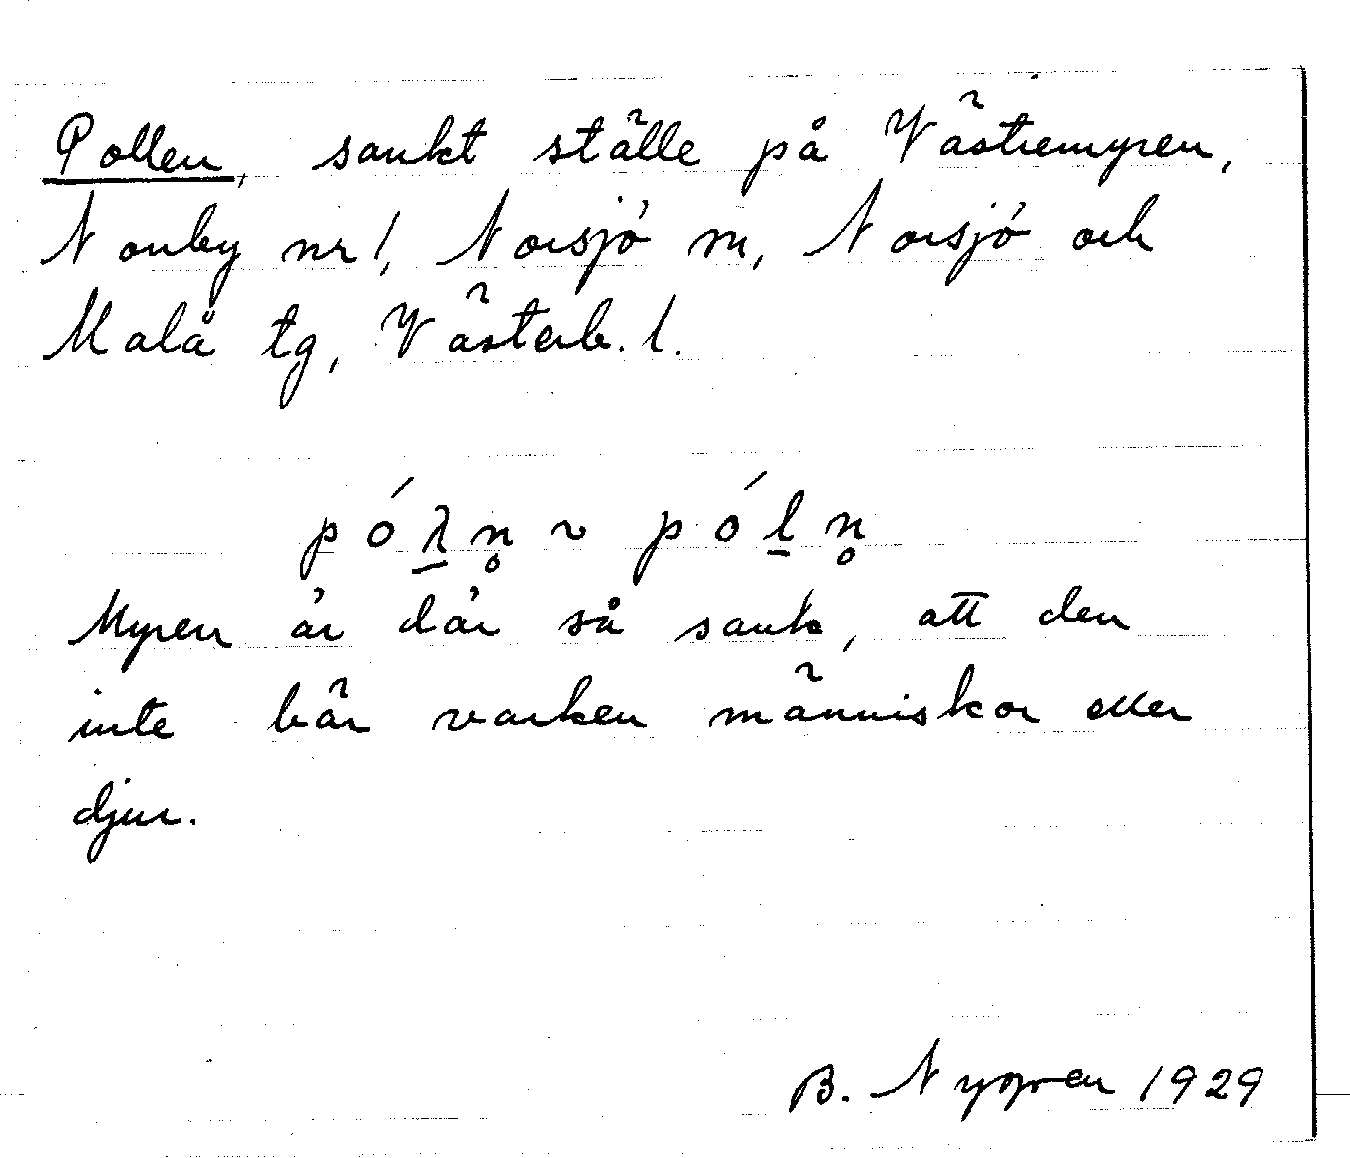 Pollen, sankt ställe på Västremyren,
Norrby nr 1, Norsjö sn, Norsjö och
Malå tg, Västerb. l.
pó́λ̲n̥ ~ pó́l̲n̥
Myren är där så sank, att den
inte bär varken människor eller
djur.
B. Nygren 1929